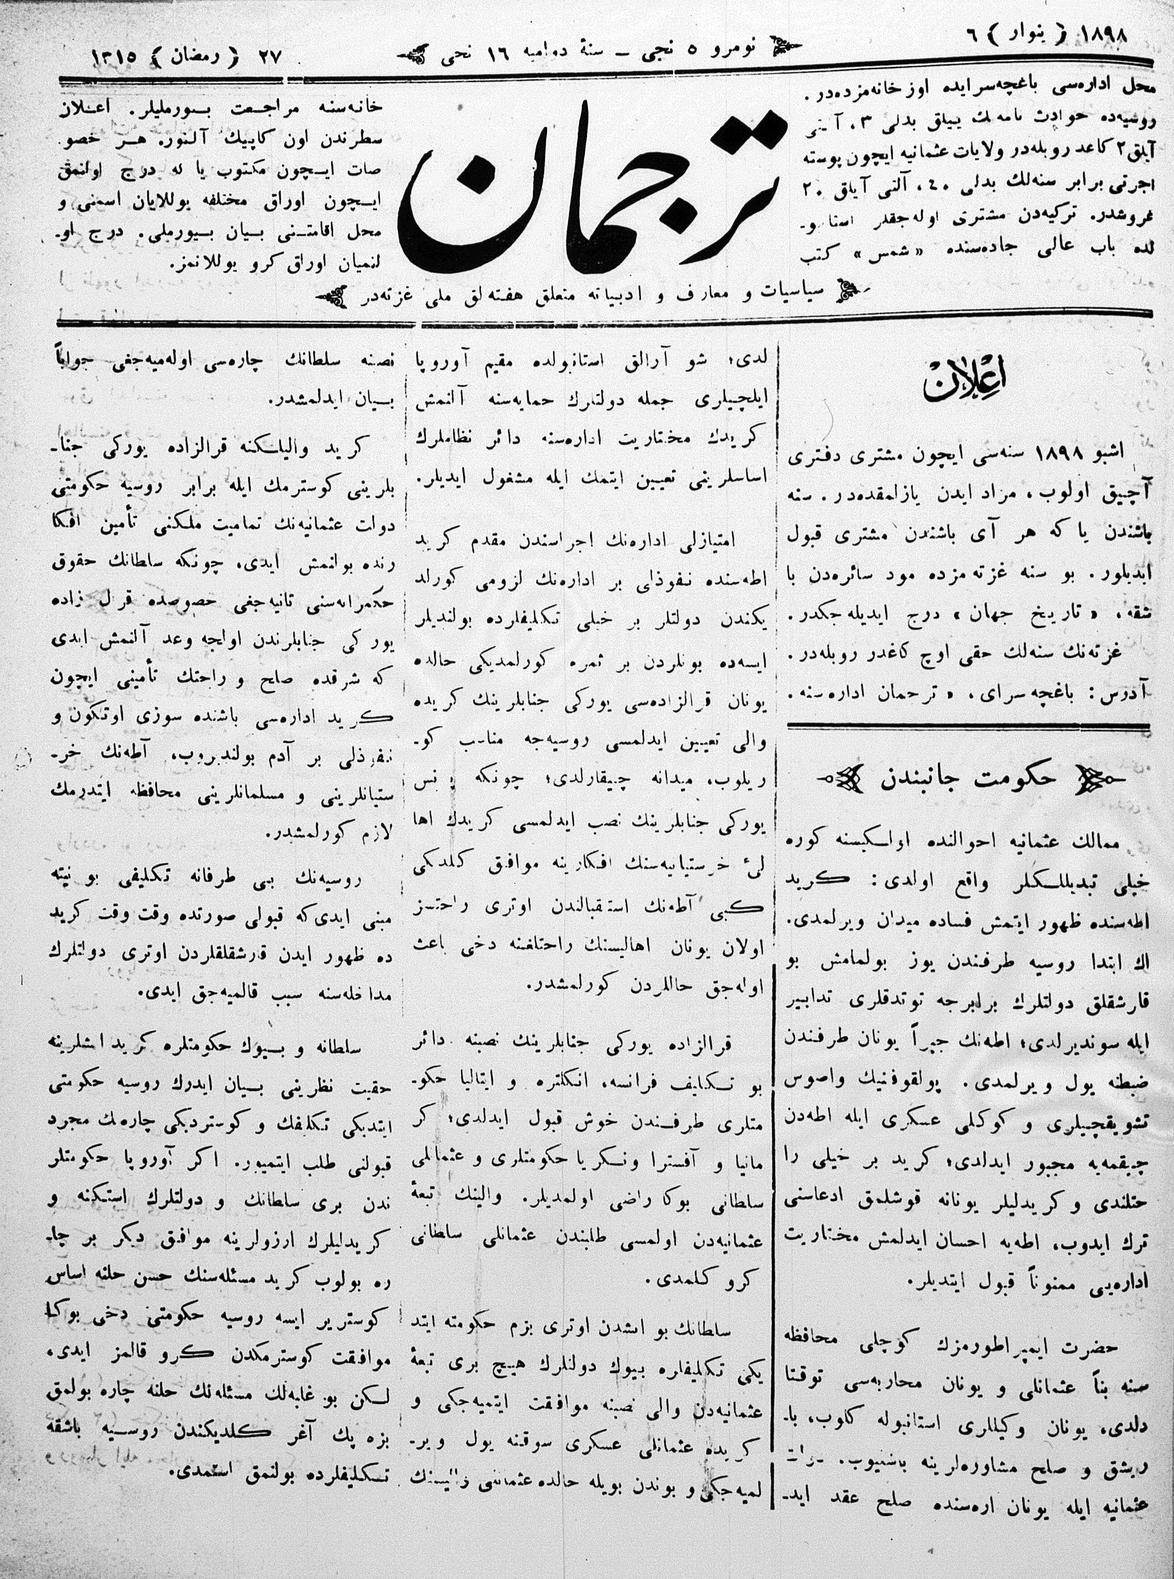 ١٨٩٨ ( ينوار ) ٦
نومرو ٥ نجى ــ سنۀ دواميه ١٦ نجى
٢٧ ( رمضان ) ١٣١٥
محل اداره‌سى باغچه‌سرايده اوز خانه‌مزده‌در.
روسيه‌ده حوادث نامه‌نك ييللق بدلى ٣، آلتى
آيلق ٢ كاغد روبله‌در ولايات عثمانيه ايچون پوسته
اجرتى برابر سنه‌لك بدلى ٤٠، آلتى آيلق ٢٠
غروشدر. تركيه‌دن مشترى اوله‌جقلر استانبو‌ـ
لده باب عالى جاده‌سنده «شمس» كتب
خانه‌سنه مراجعت بيورمليلر. اعلان
سطرندن اون كاپيك آلنور. هر خصو
صات ايچون مكتوب يا له درج اولنمق
ايچون اوراق مختلفه يوللايان اسمنى و
محل اقامتنى بيان بيورملى. درج او‌ـ
لنميان اوراق كرو يوللانمز.
ترجمان
سياسيات و معارف و ادبياته متعلق هفته‌لق ملى غزته‌در
اعلان
اشبو ١٨٩٨ سنه‌سى ايچون مشترى دفترى
آچيق اولوب، مراد ايدن يازلمقده‌در. سنه
باشندن يا كه هر آى باشندن مشترى قبول
ايديلور. بو سنه غزته‌مزده مود سائره‌دن با
شقه، «تاريخ جهان» درج ايديله‌جكدر.
غزته‌نك سنه‌لك حقى اوچ كاغدر روبله‌در.
آدرس: باغچه سراى، «ترجمان اداره‌سنه.
حكومت جانبندن
ممالك عثمانيه احوالنده اولسكيسنه كوره
خيلى تبديللكلر واقع اولدى: كريد
اطه‌سنده ظهور ايتمش فساده ميدان ويرلمدى.
اك ابتدا روسيه طرفندن يوز بولمامش بو
قارشقلق دولتلرك برابرجه توتدقلرى تدابير
ايله سونديرلدى؛ اطه‌نك جبراً يونان طرفندن
ضبطنه يول ويرلمدى. پولقوفنيك واصوس
تشويقچيلرى و كوكلى عسكرى ايله اطه‌دن
چيقمه‌يه مجبور ايدلدى؛ كريد بر خيلى را
حتلندى و كريدليلر يونانه قوشلمق ادعاسنى
ترك ايدوب، اطه‌يه احسان ايدلمش مختاريت
اداره‌يى ممنوناً قبول ايتديلر.
حضرت ايمپراطورمزك كوچلى محافظه
سنه بناً عثمانلى و يونان محاربه‌سى توقتا
دلدى، يونان وكيللرى استانبوله كلوب، با‌ـ
ريشق و صلح مشاوره‌لرينه باشليوب.
عثمانيه ايله يونان اره‌سنده صلح عقد ايد‌ـ
لدى؛ شو آرالق استانبولده مقيم آوروپا
ايلچيلرى جمله دولتلرك حمايه‌سنه آلنمش
كريدك مختاريت اداره‌سنه دائر نظاملرك
اساسلرينى تعيين ايتمك ايله مشغول ايديلر.
امتيازلى اداره‌نك اجراسندن مقدم كريد
اطه‌سنده نفوذلى بر اداره‌نك لزومى كورلد
يكندن دولتلر بر خيلى تكليفلرده بولنديلر
ايسه‌ده بونلردن بر ثمره كورلمديكى حالده
يونان قرالزاده‌سى يوركى جنابلرينك كريده
والى تعيين ايدلمسى روسيه‌جه مناسب كو‌ـ
ريلوب، ميدانه چيقارلدى؛ چونكه پرنس
يوركى جنابلرينك نصب ايدلمسى كريدك اها
لئ خرستيانيه‌سنك افكارينه موافق كلدكى
كبى آطه‌نك استقبالندن اوترى راحتسز
اولان يونان اهاليسنك راحتلغنه دخى باعث
اوله‌جق حاللردن كورلمشدر.
قرالزاده يوركى جنابلرينك نصبنه دائر
بو تكليف فرانسه، انكلتره و ايتاليا حكو‌ـ
متلرى طرفندن خوش قبول ايدلدى؛ كر
مانيا و آفسترا ونكريا حكومتلرى و عثمانلى
سلطانى بوكا راضى اولمديلر. والينك تبعۀ
عثمانيه‌دن اولمسى طلبندن عثمانلى سلطانى
كرو كلمدى.
سلطانك بو ايشدن اوترى بزم حكومته ايتد
يكى تكليفلره بيوك دولتلرك هيچ برى تبعۀ
عثمانيه‌دن والى نصبنه موافقت ايتميه‌جكى و
كريده عثمانلى عسكرى سوقنه يول وير‌ـ
لميه‌جكى و بوندن بويله حالده عثمانلى والينك
نصبنه سلطانك چاره‌سى اوله‌ميه‌جغى جواباً
بيان ايدلمشدر.
كريد واليلكنه قرالزاده يوركى جنا‌ـ
بلرينى كوسترمك ايله برابر روسيه حكومتى
دولت عثمانيه‌نك تماميت ملكنى تأمين افكا
رنده بولنمش ايدى، چونكه سلطانك حقوق
حكمرانه‌سنى تانيه‌جغى خصوصده قرال زاده
يوركى جنابلرندن اولجه وعد آلنمش ايدى
كه شرقده صلح و راحتك تأمينى ايچون
كريد اداره‌سى باشنده سوزى اوتكون و
نفوذلى بر آدم بولنديروب، آطه‌نك خر‌ـ
ستيانلرينى و مسلمانلرينى محافظه ايتدرمك
لازم كورلمشدر.
روسيه‌نك بى طرفانه تكليفى بو نيته
مبنى ايدى كه قبولى صورتده وقت وقت كريد
ده ظهور ايدن قارشقلقلردن اوترى دولتلرك
مداخله‌سنه سبب قالميه‌جق ايدى.
سلطانه و بيوك حكومتلره كريد ايشلرينه
حقيت نظرينى بيان ايدرك روسيه حكومتى
ايتديكى تكليفك و كوستردیكى چاره‌نك مجرد
قبولنى طلب ايتميور. اكر آوروپا حكومتلر
ندن برى سلطانك و دولتلرك استكنه و
كريدليلرك ارزولرينه موافق ديكر بر چا‌ـ
ره بولوب كريد مسئله‌سنك حسن حلنه اساس
كوسترير ايسه روسيه حكومتى دخى بوكا
موافقت كوسترمكدن كرو قالمز ايدى،
لكن بو غايه‌لك مسئله‌نك حلنه چاره بولمق
بزه پك آغر كلديكندن روسيه باشقه
تكليفلرده بولنمق استمدى.